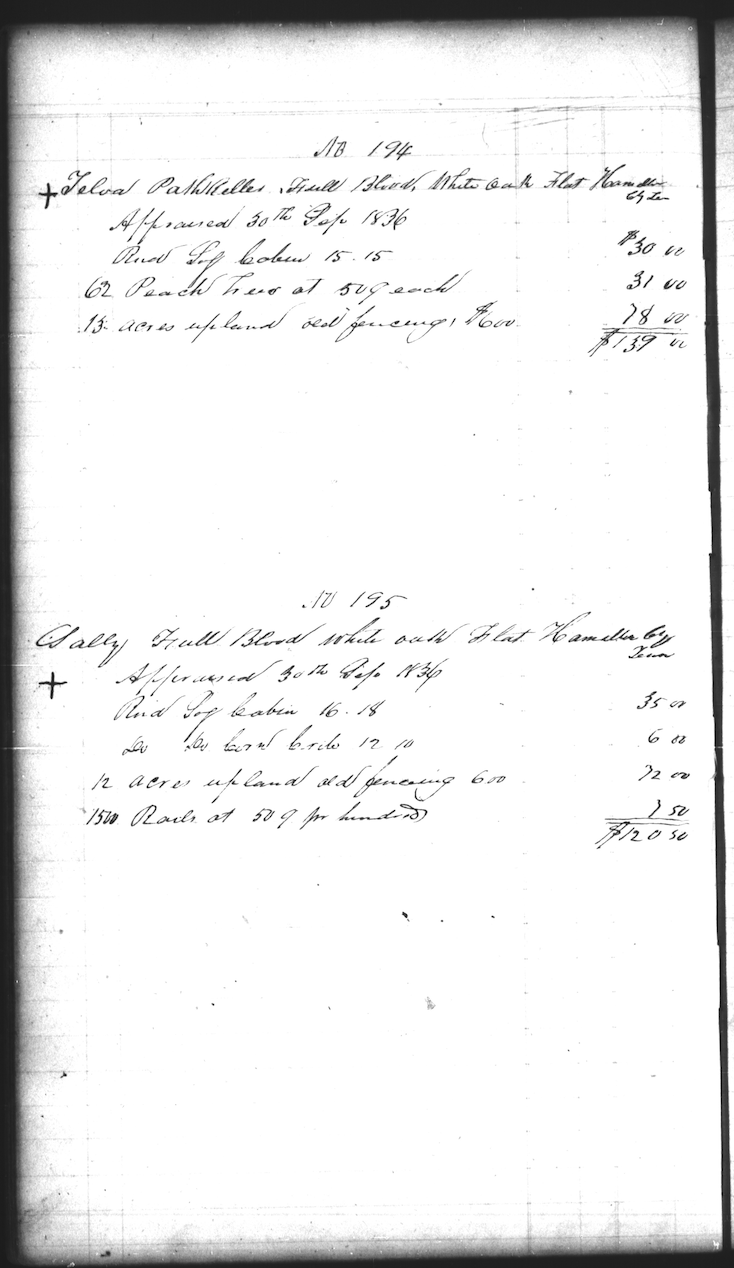 No 194
+ Telva PathKiller, Full Blood, White oak Flat Hamilton
Cy Ten
Appraised 30th Sep 1836
Rnd Log Cabin 15-15 $30 00
62 Peach Trees at 50¢ each 31 00
13 acres upland old fencing, $600 78 00
$139 00
No 195
Sally, Full Blood White oak Flat Hamilton Cy
Tenn
+ Appraised 30th Sep 1836
Rnd Log Cabin 16-18 35 00
Do Do Corn Crib 12 10 6 00
12 acres upland old fencing 600 72 00
1500 Rails at 50¢ pr hundred 7 50
$120 50